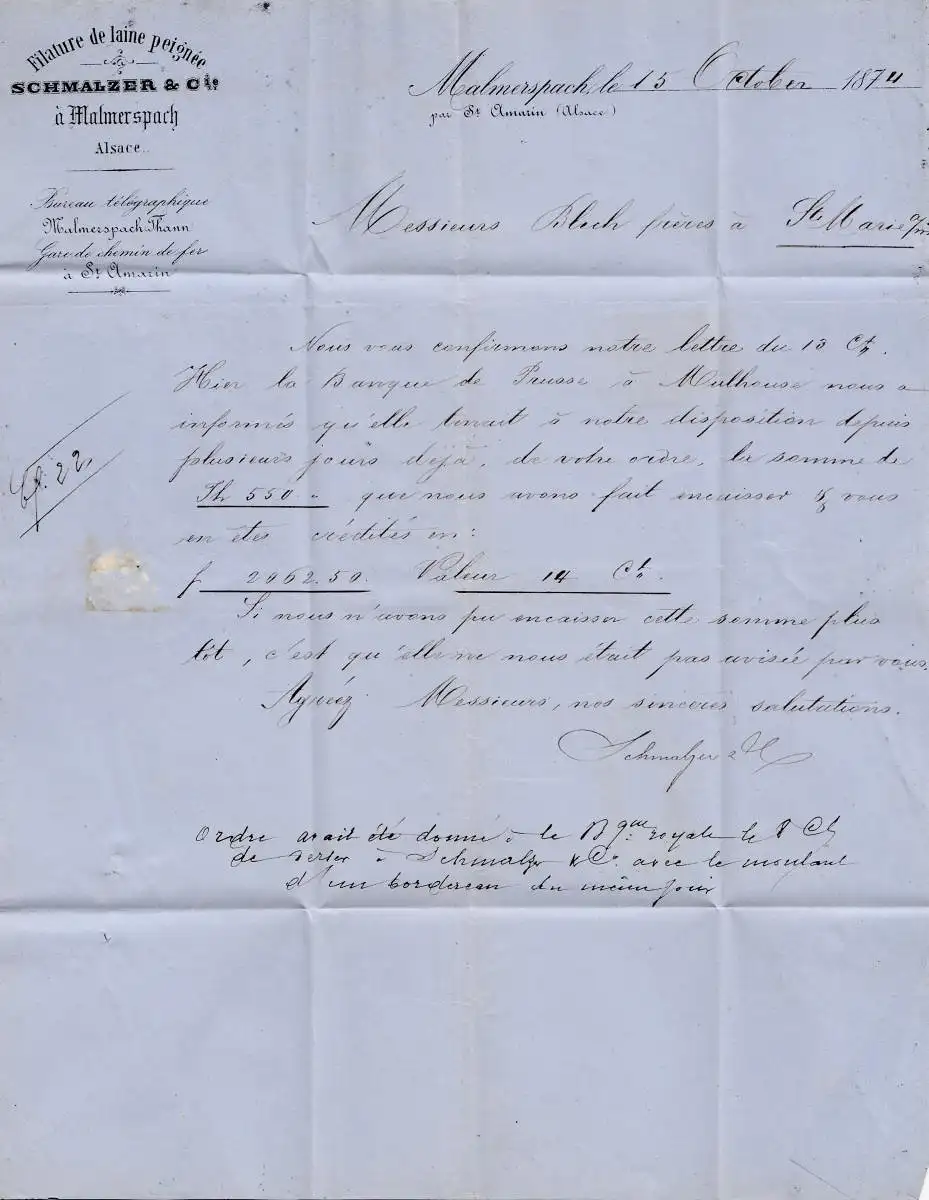 Filature de laine peignée
SCHMALZER & Cie
à Malmerspach
Alsace.
Bureau télégraphique
Malmerspach Thann
Gare de chemin de fer
à St Amarin
Malmerspach, le 15 October 1874
par St Amarin (Alsace)
Messieurs Bloch frères à Ste Marie a/m
Nous vous confirmons notre lettre du 13 Ct.
Hier la Banque de Prusse à Mulhouse nous a
informés qu'elle tenait à notre disposition depuis
plusieurs jours déjà, de votre ordre, la somme de
Th 550 " que nous avons fait encaisser & vous
en êtes crédités en:
f 2062.50. Valeur 14 Ct.
Si nous n'avons pu encaisser cette somme plus
tôt, c'est qu'elle ne nous était pas avisée par vous.
Agréez Messieurs, nos sincères salutations.
Schmalzer & Co
22
Ordre avait été donné à la Bque royale le 8 Ct
de verser à Schmalzer & Co. avec le montant
d'un bordereau du même jour